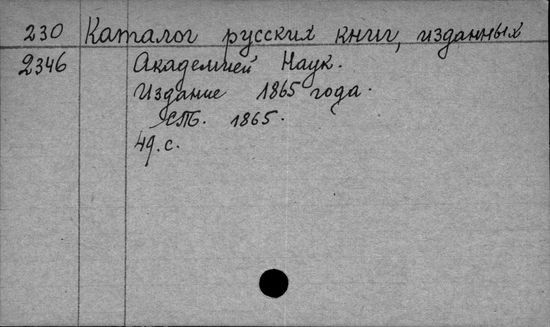 230 Каталог русских книг, изданных
2346 Академией Наук.
Издание 1865 года.
СПБ. 1865.
49.с.